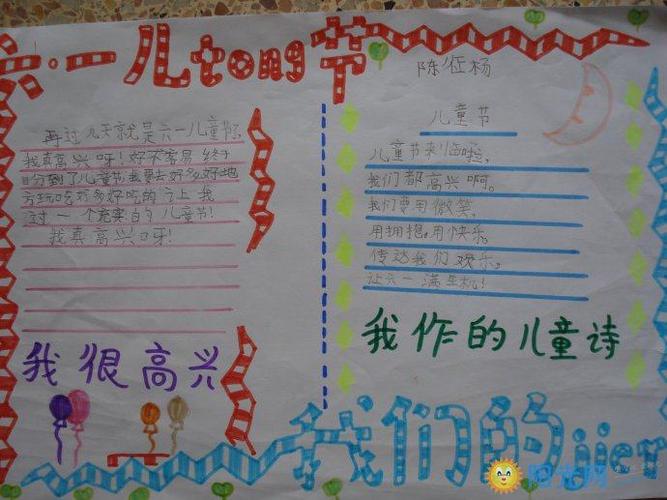 六·一儿tong节
再过几天就是六一儿童节了
我真高兴呀！好不容易 终于
盼到了儿童节我要去好多好地
方玩吃好多好吃的 上 我
过 一 个充实的儿童节！
我真高兴呀！
我 很 高兴
陈征杨
儿童节
儿童节来临啦，
我们都高兴啊。
我们要用微笑，
用拥抱，用快乐。
传达我们欢乐。
让六一满生机！
我作的儿童诗
我们的
阳光网